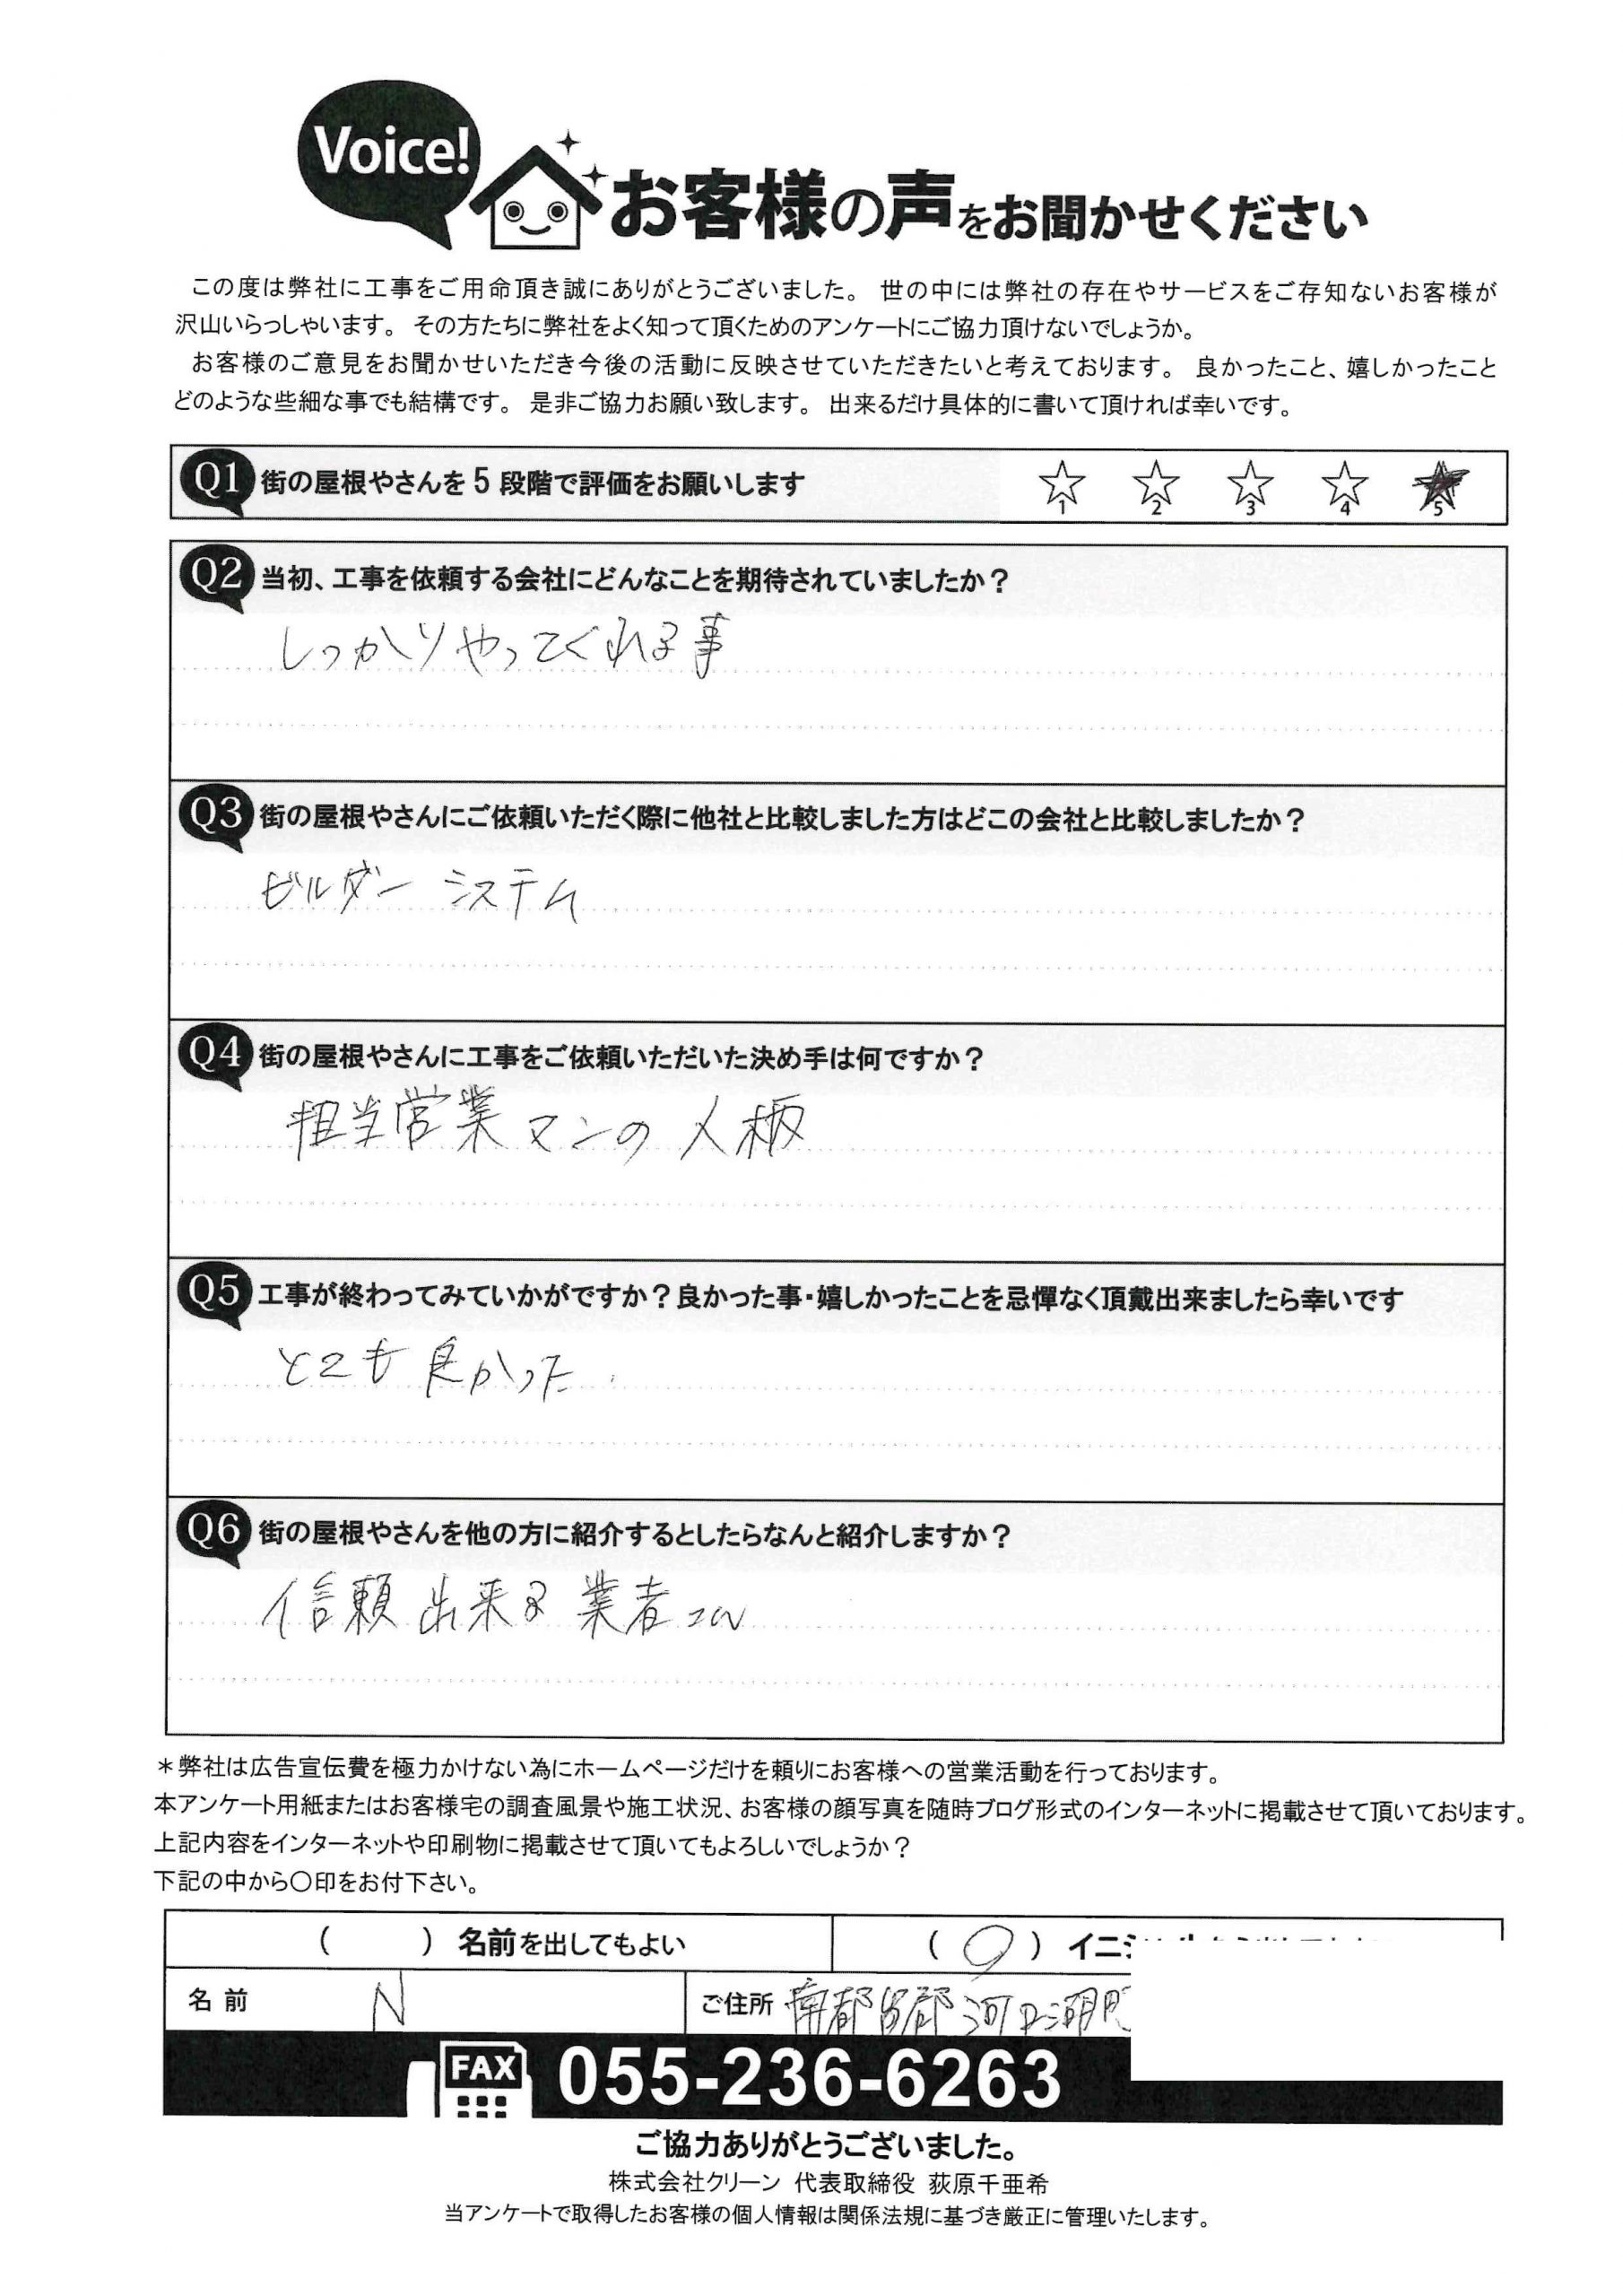 Voice!
お客様の声をお聞かせください
この度は弊社に工事をご用命頂き誠にありがとうございました。 世の中には弊社の存在やサービスをご存知ないお客様が
沢山いらっしゃいます。 その方たちに弊社をよく知って頂くためのアンケートにご協力頂けないでしょうか。
お客様のご意見をお聞かせいただき今後の活動に反映させていただきたいと考えております。 良かったこと、嬉しかったこと
どのような些細な事でも結構です。 是非ご協力お願い致します。 出来るだけ具体的に書いて頂ければ幸いです。
Q1 街の屋根やさんを5段階で評価をお願いします ☆1 ☆2 ☆3 ☆4 ★5
Q2 当初、工事を依頼する会社にどんなことを期待されていましたか？
しっかりやってくれる事
Q3 街の屋根やさんにご依頼いただく際に他社と比較しました方はどこの会社と比較しましたか？
ビルダーシステム
Q4 街の屋根やさんに工事をご依頼いただいた決め手は何ですか？
担当営業マンの人柄
Q5 工事が終わってみていかがですか？良かった事・嬉しかったことを忌憚なく頂戴出来ましたら幸いです
とても良かった
Q6 街の屋根やさんを他の方に紹介するとしたらなんと紹介しますか？
信頼出来る業者
＊弊社は広告宣伝費を極力かけない為にホームページだけを頼りにお客様への営業活動を行っております。
本アンケート用紙またはお客様宅の調査風景や施工状況、お客様の顔写真を随時ブログ形式のインターネットに掲載させて頂いております。
上記内容をインターネットや印刷物に掲載させて頂いてもよろしいでしょうか？
下記の中から〇印をお付下さい。
( ) 名前を出してもよい (○) イニシ
名前 N ご住所 南都留郡河口湖町
FAX 055-236-6263
ご協力ありがとうございました。
株式会社クリーン 代表取締役 荻原千亜希
当アンケートで取得したお客様の個人情報は関係法規に基づき厳正に管理いたします。